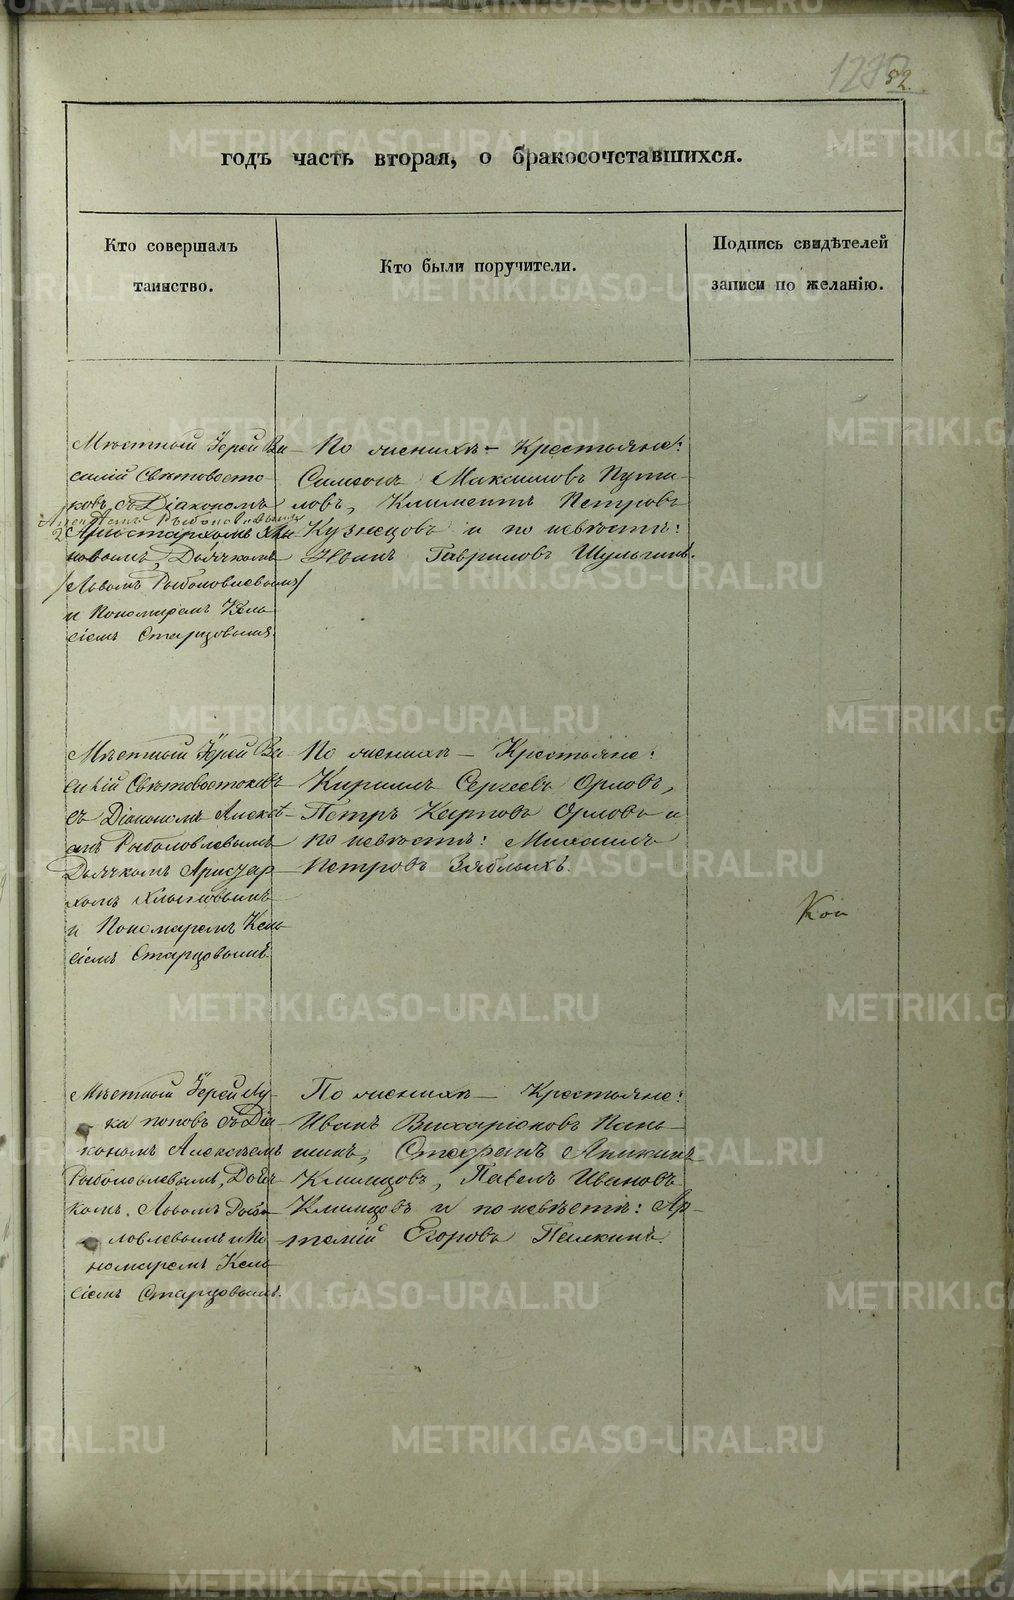 82.
годъ часть вторая, о бракосочетавшихся.
Кто совершалъ
таинство.
Кто были поручители.
Подпись свидѣтелей
записи по желанію.
Мѣстный Іерей Ва-
силій Свѣтовосто-
ковъ, съ Діакономъ
Рыболовлевымъ
2 Аристархомъ Хлы-
новымъ, Дьячкомъ
/Львомъ Рыболовлевымъ/
и Пономаремъ Кель-
сіемъ Старцовымъ.
По женихѣ - Крестьяне:
Симеонъ Максимовъ Пути-
ловъ, Климентъ Петровъ
Кузнецовъ и по невѣстѣ:
Иванъ Гавриловъ Шульгинъ.
Мѣстный Іерей Ва-
силій Свѣтовостоковъ
съ Діакономъ Алексѣ-
емъ Рыболовлевымъ
Дьячкомъ Аристар-
хомъ Хлыновымъ
и Пономаремъ Кель-
сіемъ Старцовымъ.
По женихѣ - Крестьяне:
Кириллъ Сергеевъ Орловъ,
Петръ Карповъ Орловъ и
по невѣстѣ: Михаилъ
Петровъ Зяблыхъ.
Мѣстный Іерей Лу-
ка Поповъ съ Діа-
кономъ Алексѣемъ
Рыболовлевымъ, Дьяч-
комъ Львомъ Рыбо-
ловлевымъ и По-
номаремъ Кель-
сіемъ Старцовымъ.
По женихѣ - Крестьяне:
Иванъ Пань-
шинъ, Стефанъ
Климцовъ, Павелъ Ивановъ
Климцовъ и по невѣстѣ: Ар-
темій Егоровъ Пелкинъ.
METRIKI.GASO-URAL.RU